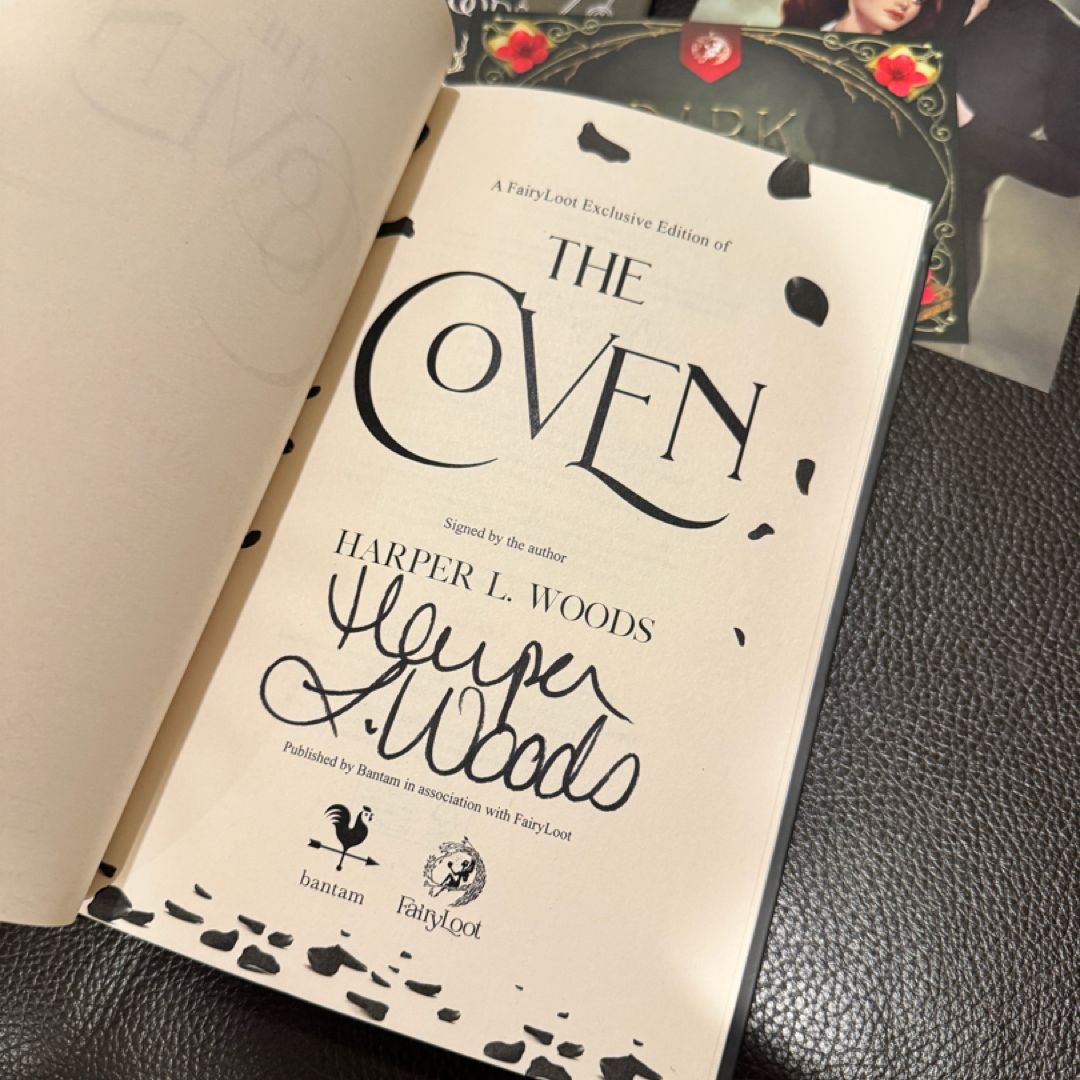 DARK
A FairyLoot Exclusive Edition of
THE
COVEN
Signed by the author
HARPER L. WOODS
Harper
L. Woods
Published by Bantam in association with FairyLoot
bantam
FairyLoot